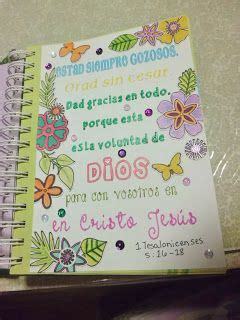 ESTAD SIEMPRE GOZOSOS.
Orad sin cesar.
Dad gracias en todo,
porque esta
es la voluntad de
DIOS
para con vosotros en
en Cristo Jesús
1 Tesalonicenses
5:16-18